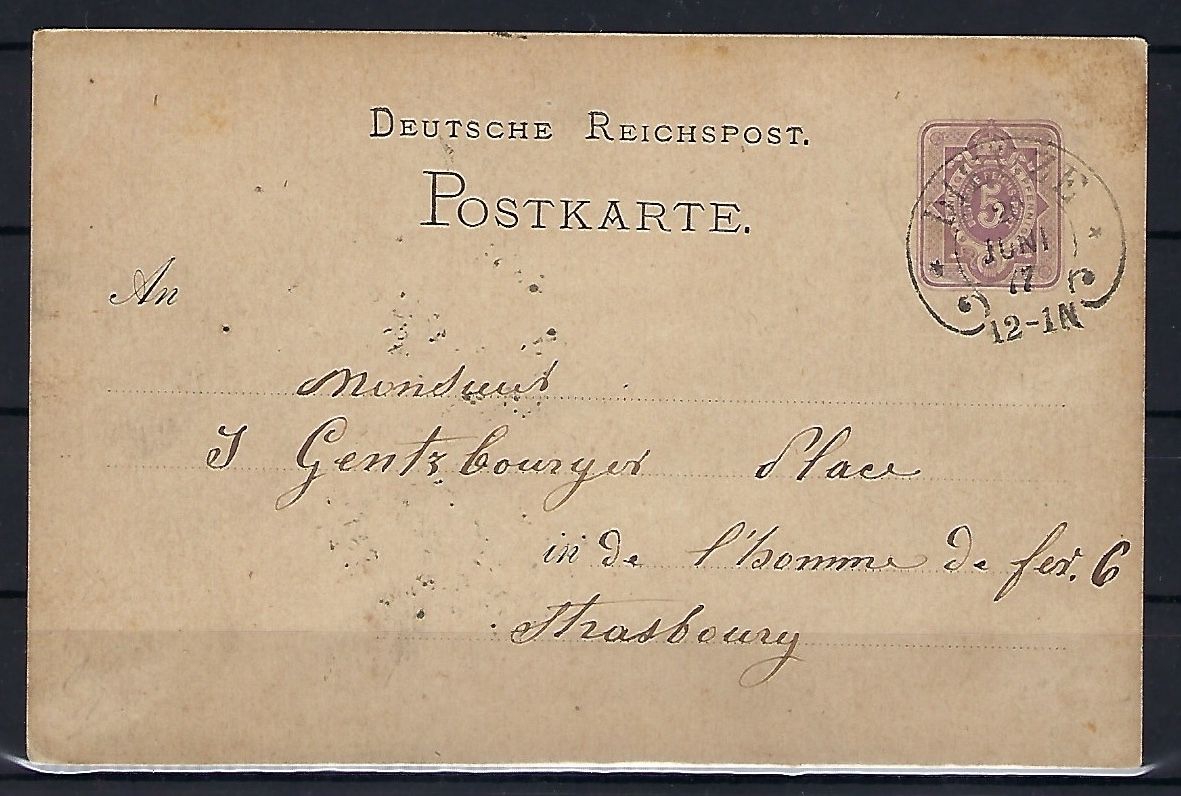 DEUTSCHE REICHSPOST.
POSTKARTE.
5
2
JUNI
77
12-1N
An
Monsieur
J Gentzbourger Place
in de l'homme de fer. 6
Strasbourg